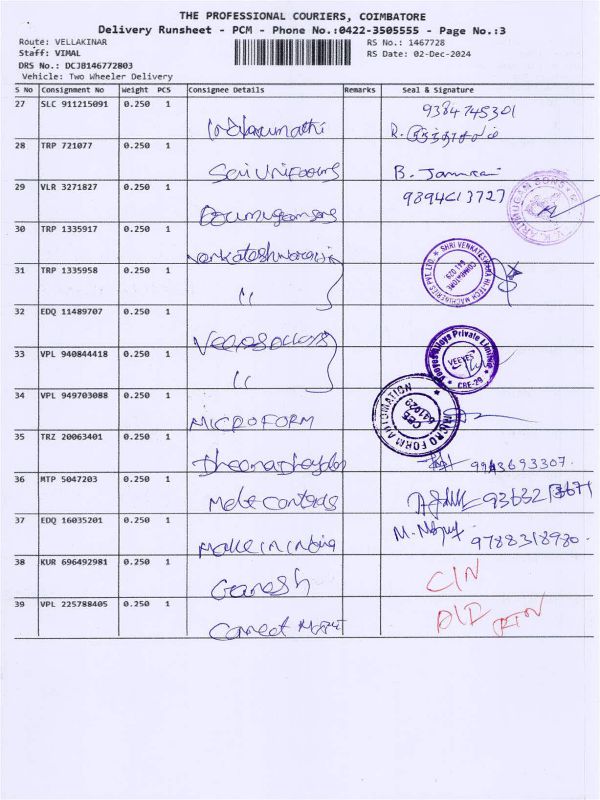 THE PROFESSIONAL COURIERS, COIMBATORE
Delivery Runsheet - PCM - Phone No.:0422-3505555 - Page No.:3
Route: VELLAKINAR
RS No.: 1467728
Staff: VIMAL
RS Date: 02-Dec-2024
DRS No.: DCJB146772803
Vehicle: Two Wheeler Delivery
S No Consignment No Weight PCS Consignee Details Remarks Seal & Signature
27 SLC 911215091 0.250 1
9384745301
28 TRP 721077 0.250 1
Sai Uniforms
B.
29 VLR 3271827 0.250 1
30 TRP 1335917 0.250 1
SHRI VENKATESHWARA HI-TECH MACHINERIES PVT LTD
COIMBATORE
641 029
31 TRP 1335958 0.250 1
32 EDQ 11489707 0.250 1
Veeyes Alloys Private Limited
VEEYES
CBE-29
33 VPL 940844418 0.250 1
34 VPL 949703088 0.250 1
MICROFORM
MICRO FORM AUTOMATION
CBE
641029
35 TRZ 20063401 0.250 1
9943693307.
36 MTP 5047203 0.250 1
37 EDQ 16035201 0.250 1
Make in India
9788318980.
38 KUR 696492981 0.250 1
Ganesh
CIN
39 VPL 225788405 0.250 1